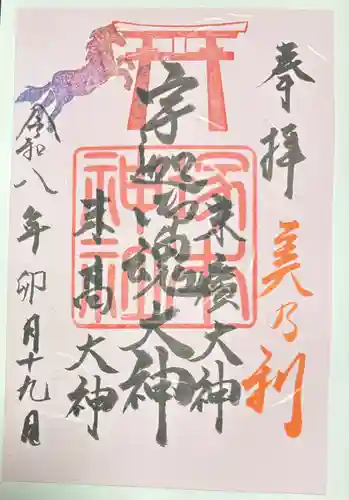 奉拝
美乃利
末廣大神
宇迦之御魂大神
末高大神
令和八年卯月十九日